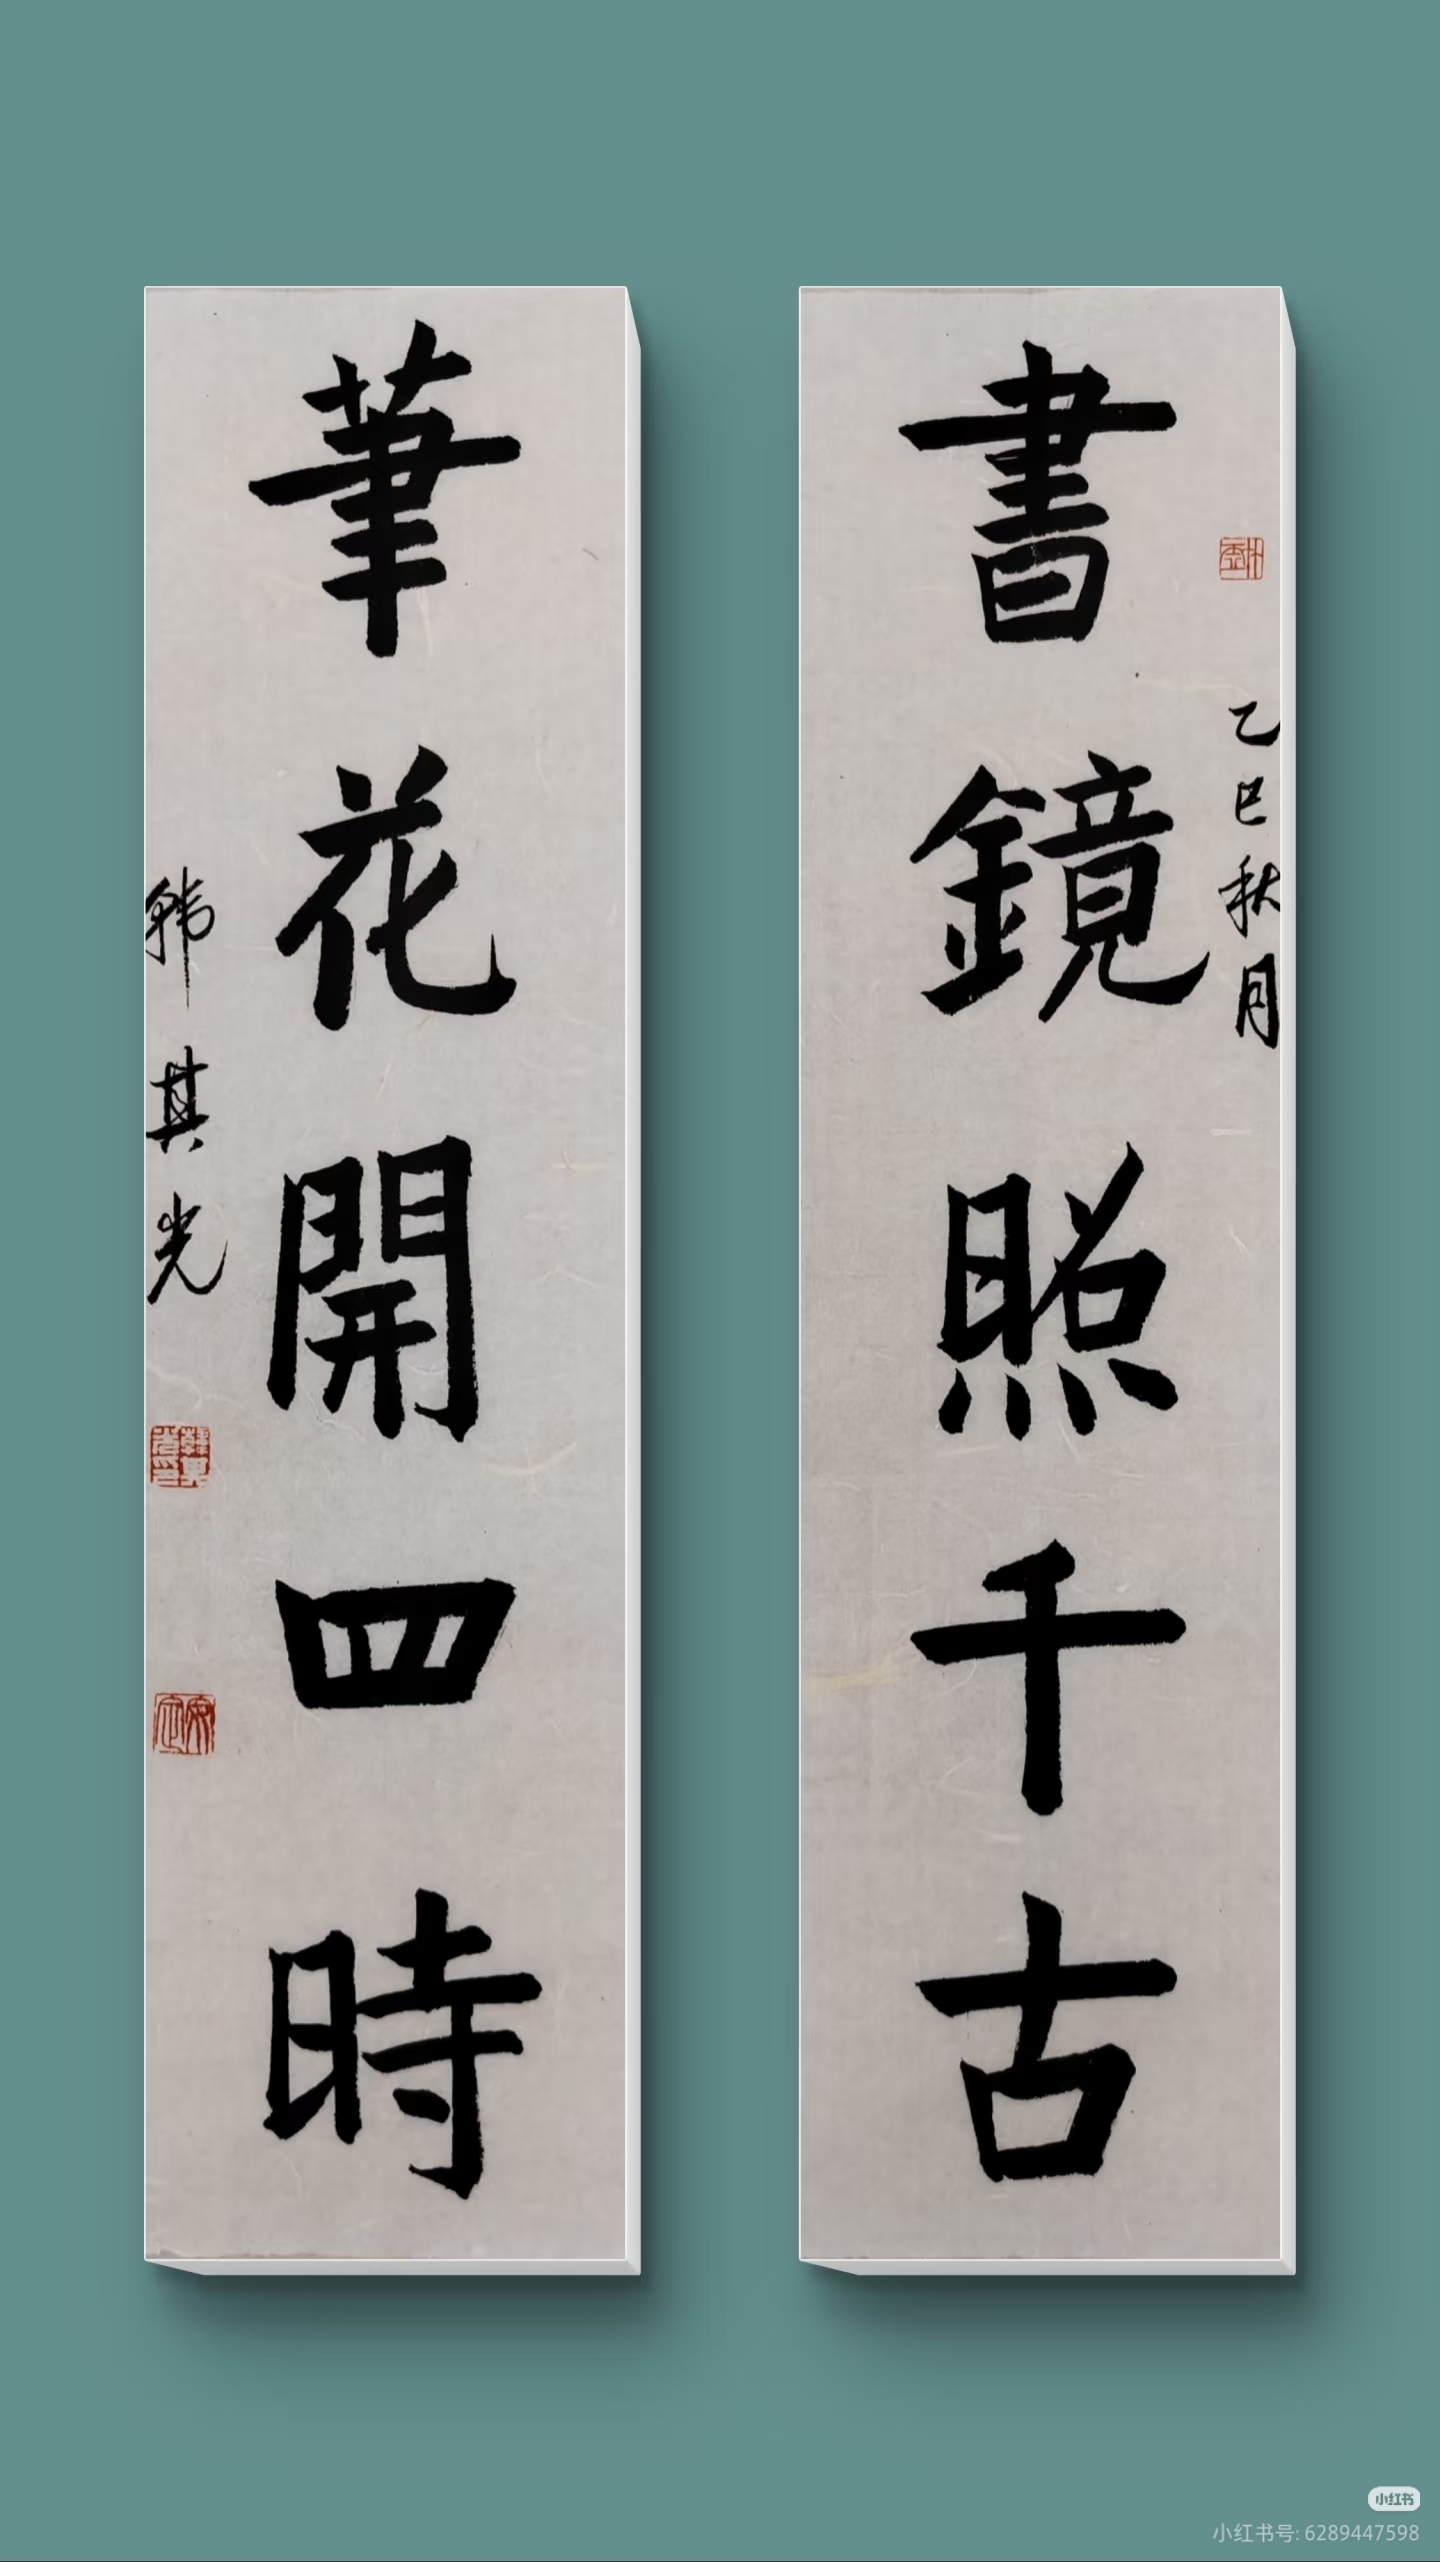 書鏡照千古
乙巳秋月
筆花開四時
韩其光
小红书
小红书号: 6289447598